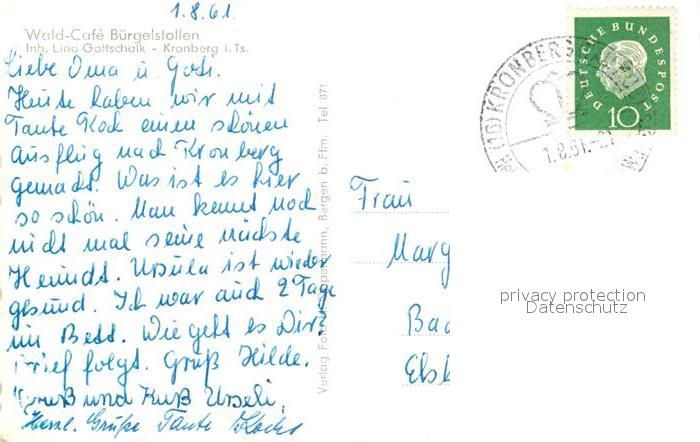 1.8.61.
Wald-Café Bürgelstollen
Inh. Lina Gottschalk - Kronberg i. Ts.
Liebe Oma u. Gosi.
Heute haben wir mit
Tante Koch einen schönen
Ausflug nach Kronberg
gemacht. Was ist es hier
so schön. Man kennt noch
nicht mal seine nächste
Heimat. Ursula ist wieder
gesund. Ich war auch 2 Tage
im Bett. Wie geht es Dir?
Brief folgt. Gruß Hilde.
Gruß und Kuß Urseli,
Herzl. Grüße Tante
Bergen b. Ffm. Tel. 871
DEUTSCHE BUNDESPOST
10
(16) KRONBERG
1.8.61.-21
Frau
Marg
Bad
Elsb
privacy protection
Datenschutz